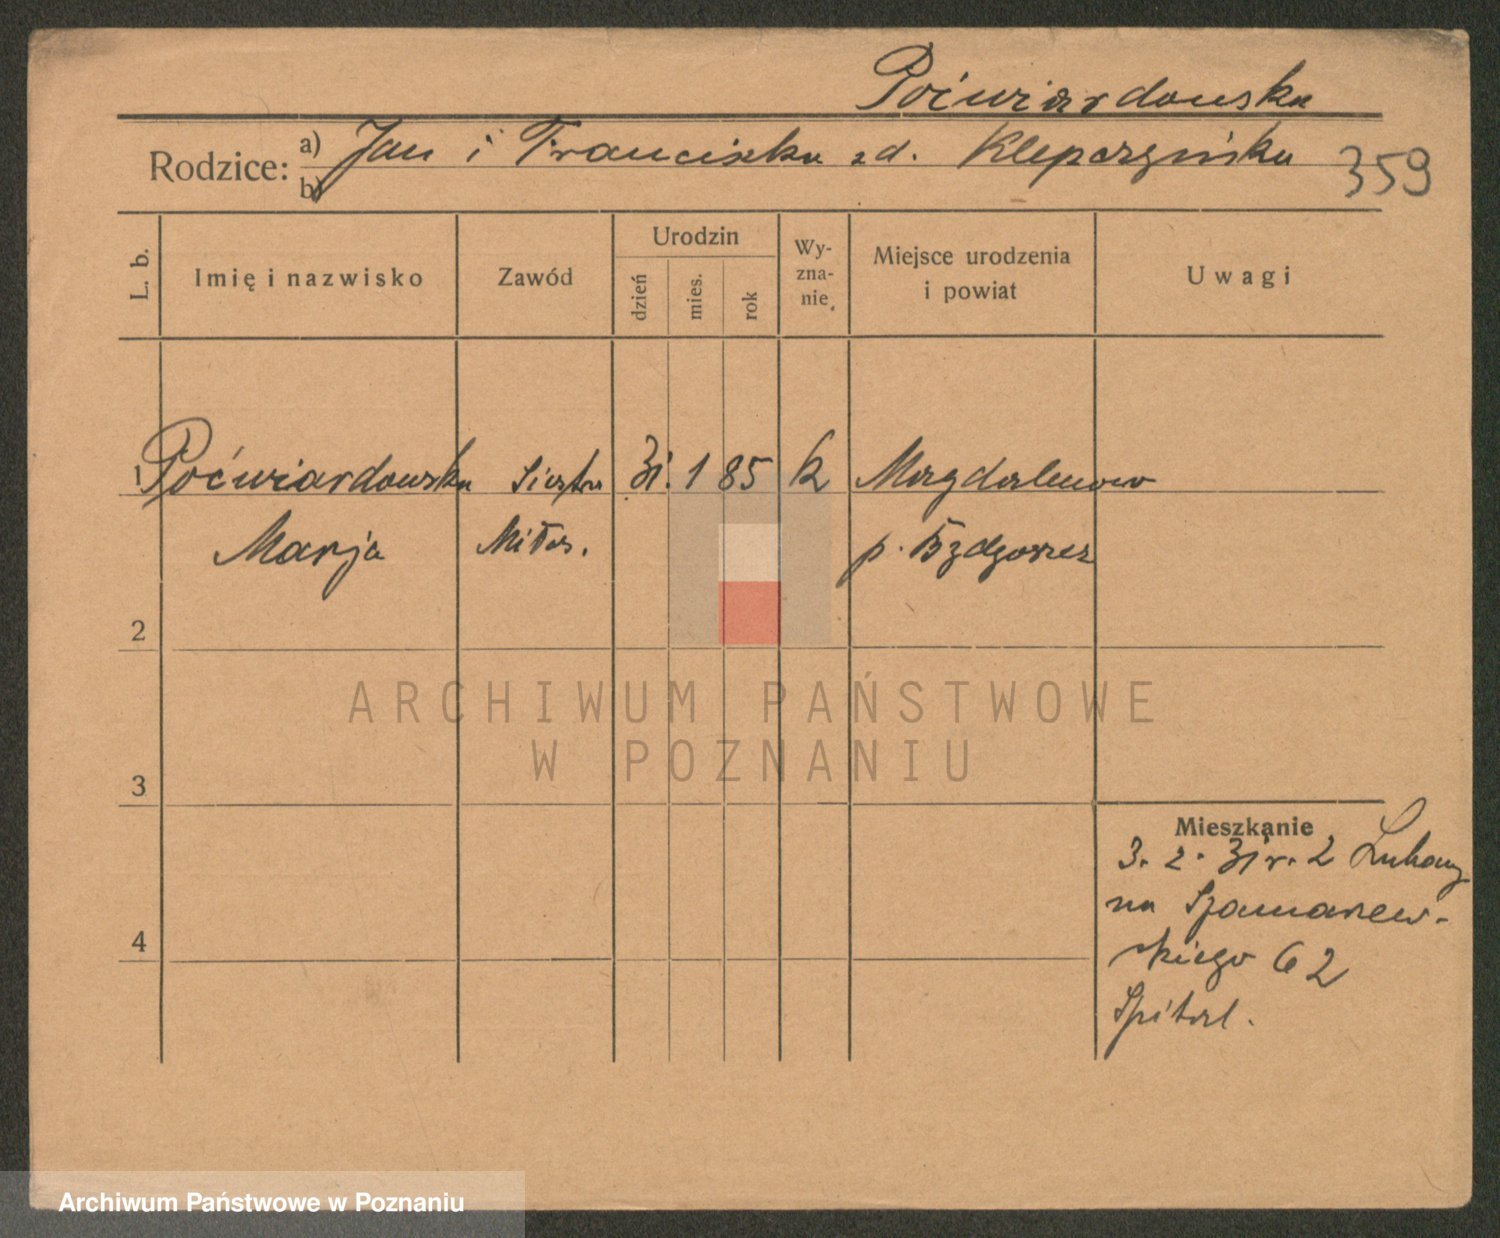 Poćwiardowska
Rodzice: a) Jan i Franciszka z d. Klepczyńska
b)
359
L. b.
Imię i nazwisko
Zawód
Urodzin
dzień
mies.
rok
Wy-
zna-
nie
Miejsce urodzenia
i powiat
Uwagi
1 Poćwiardowska Siostra 31. 1 85 k Magdalenowo
Marja Miłos. p. Bydgoszcz
2
3
4
Mieszkanie
3. 2. 31 r. z
na Szamarzew-
skiego 62
Szpital.
ARCHIWUM PAŃSTWOWE
W POZNANIU
Archiwum Państwowe w Poznaniu